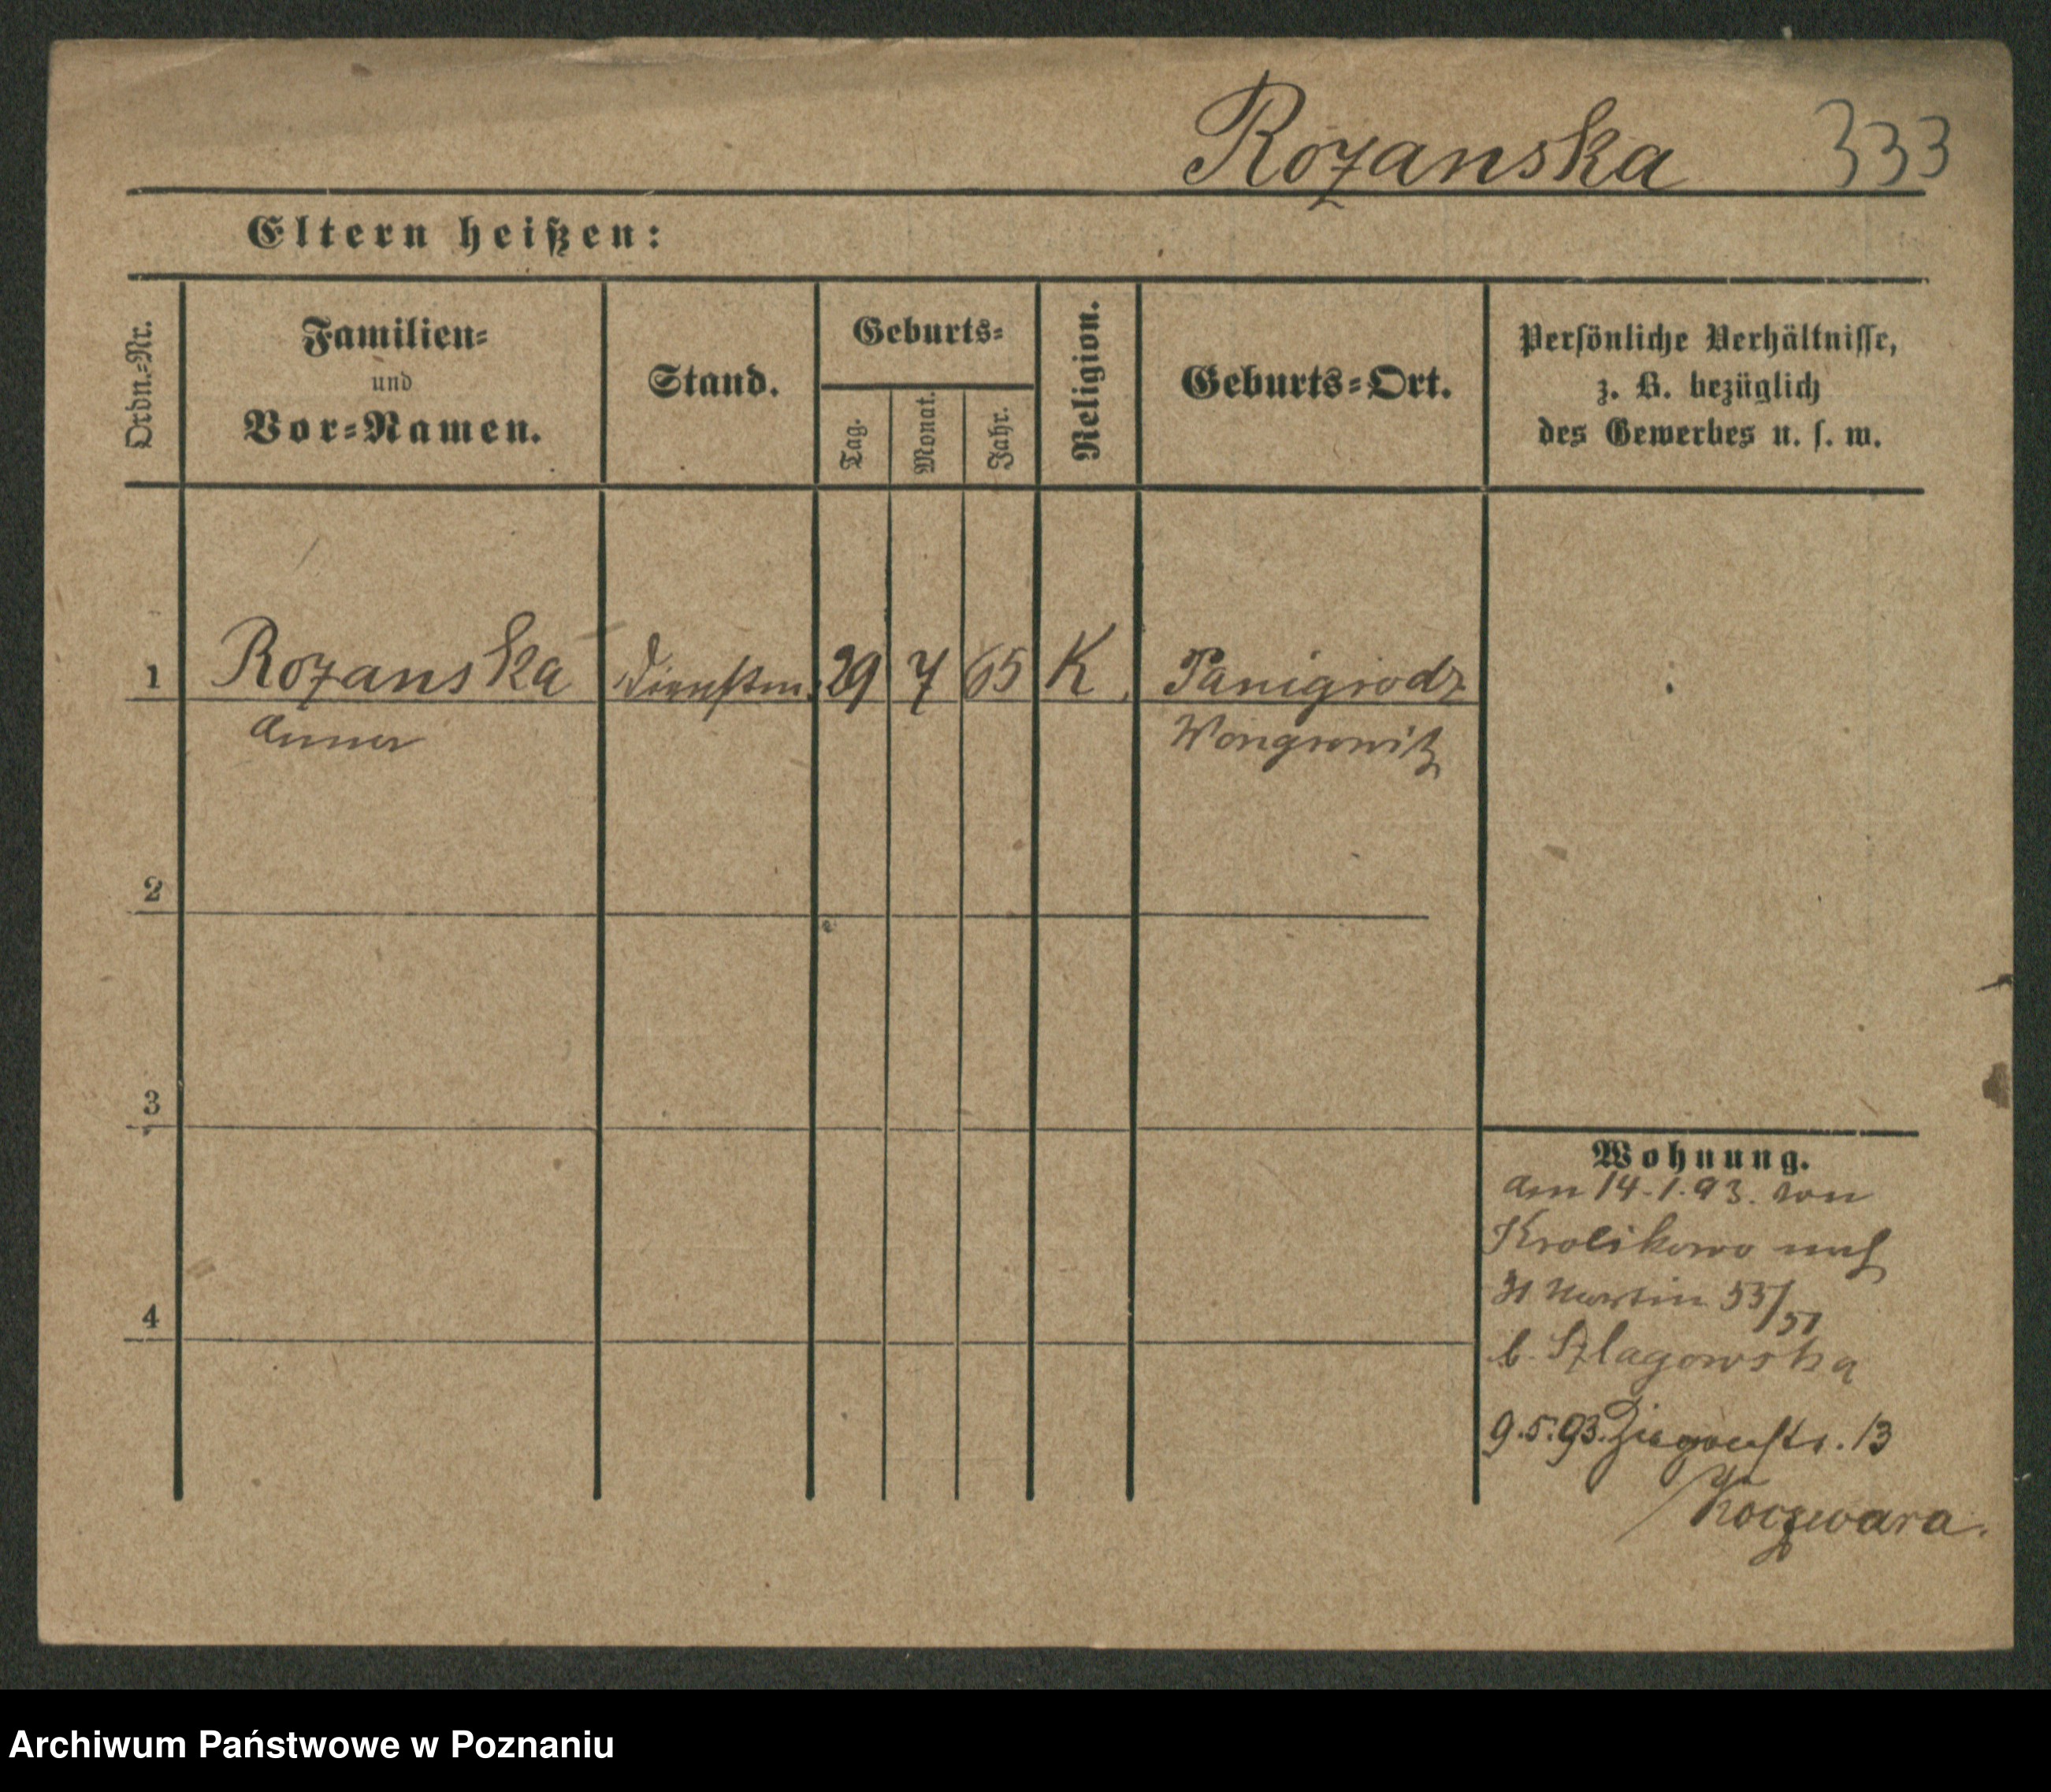 Rozanska 333
Eltern heißen:
Ordn.=Nr.
Familien=
und
Vor=Namen.
Stand.
Geburts=
Tag.
Monat.
Jahr.
Religion.
Geburts=Ort.
Persönliche Verhältnisse,
z. B. bezüglich
des Gewerbes u. s. w.
1 Rozanska Dienstm. 29 7 65 K. Panigrodz
Anna Wongrowitz
2
3
4
Wohnung.
am 14.1.93. von
Krolikowo nach
St Martin 55/51
b. Szlagowska
9.5.93. 13
Koczwara.
Archiwum Państwowe w Poznaniu